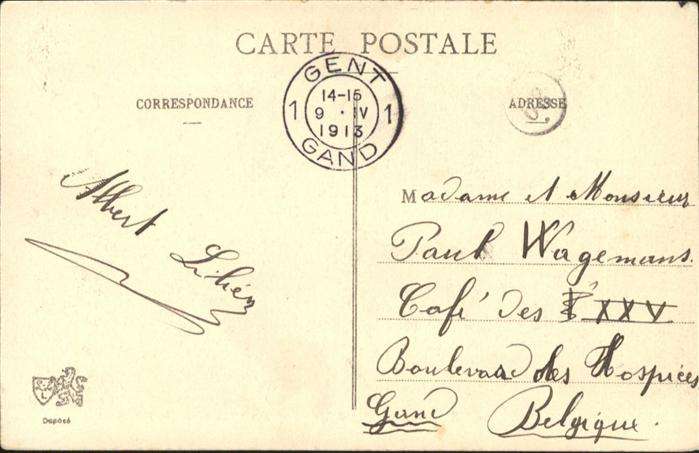 CARTE POSTALE
GENT
14-15
1 9 · IV 1
1913
GAND
CORRESPONDANCE
ADRESSE
Albert
Madame et Monsieur
Paul Wagemans.
Café des XXV
Boulevard des Hospices
Gand Belgique.
L
Déposé